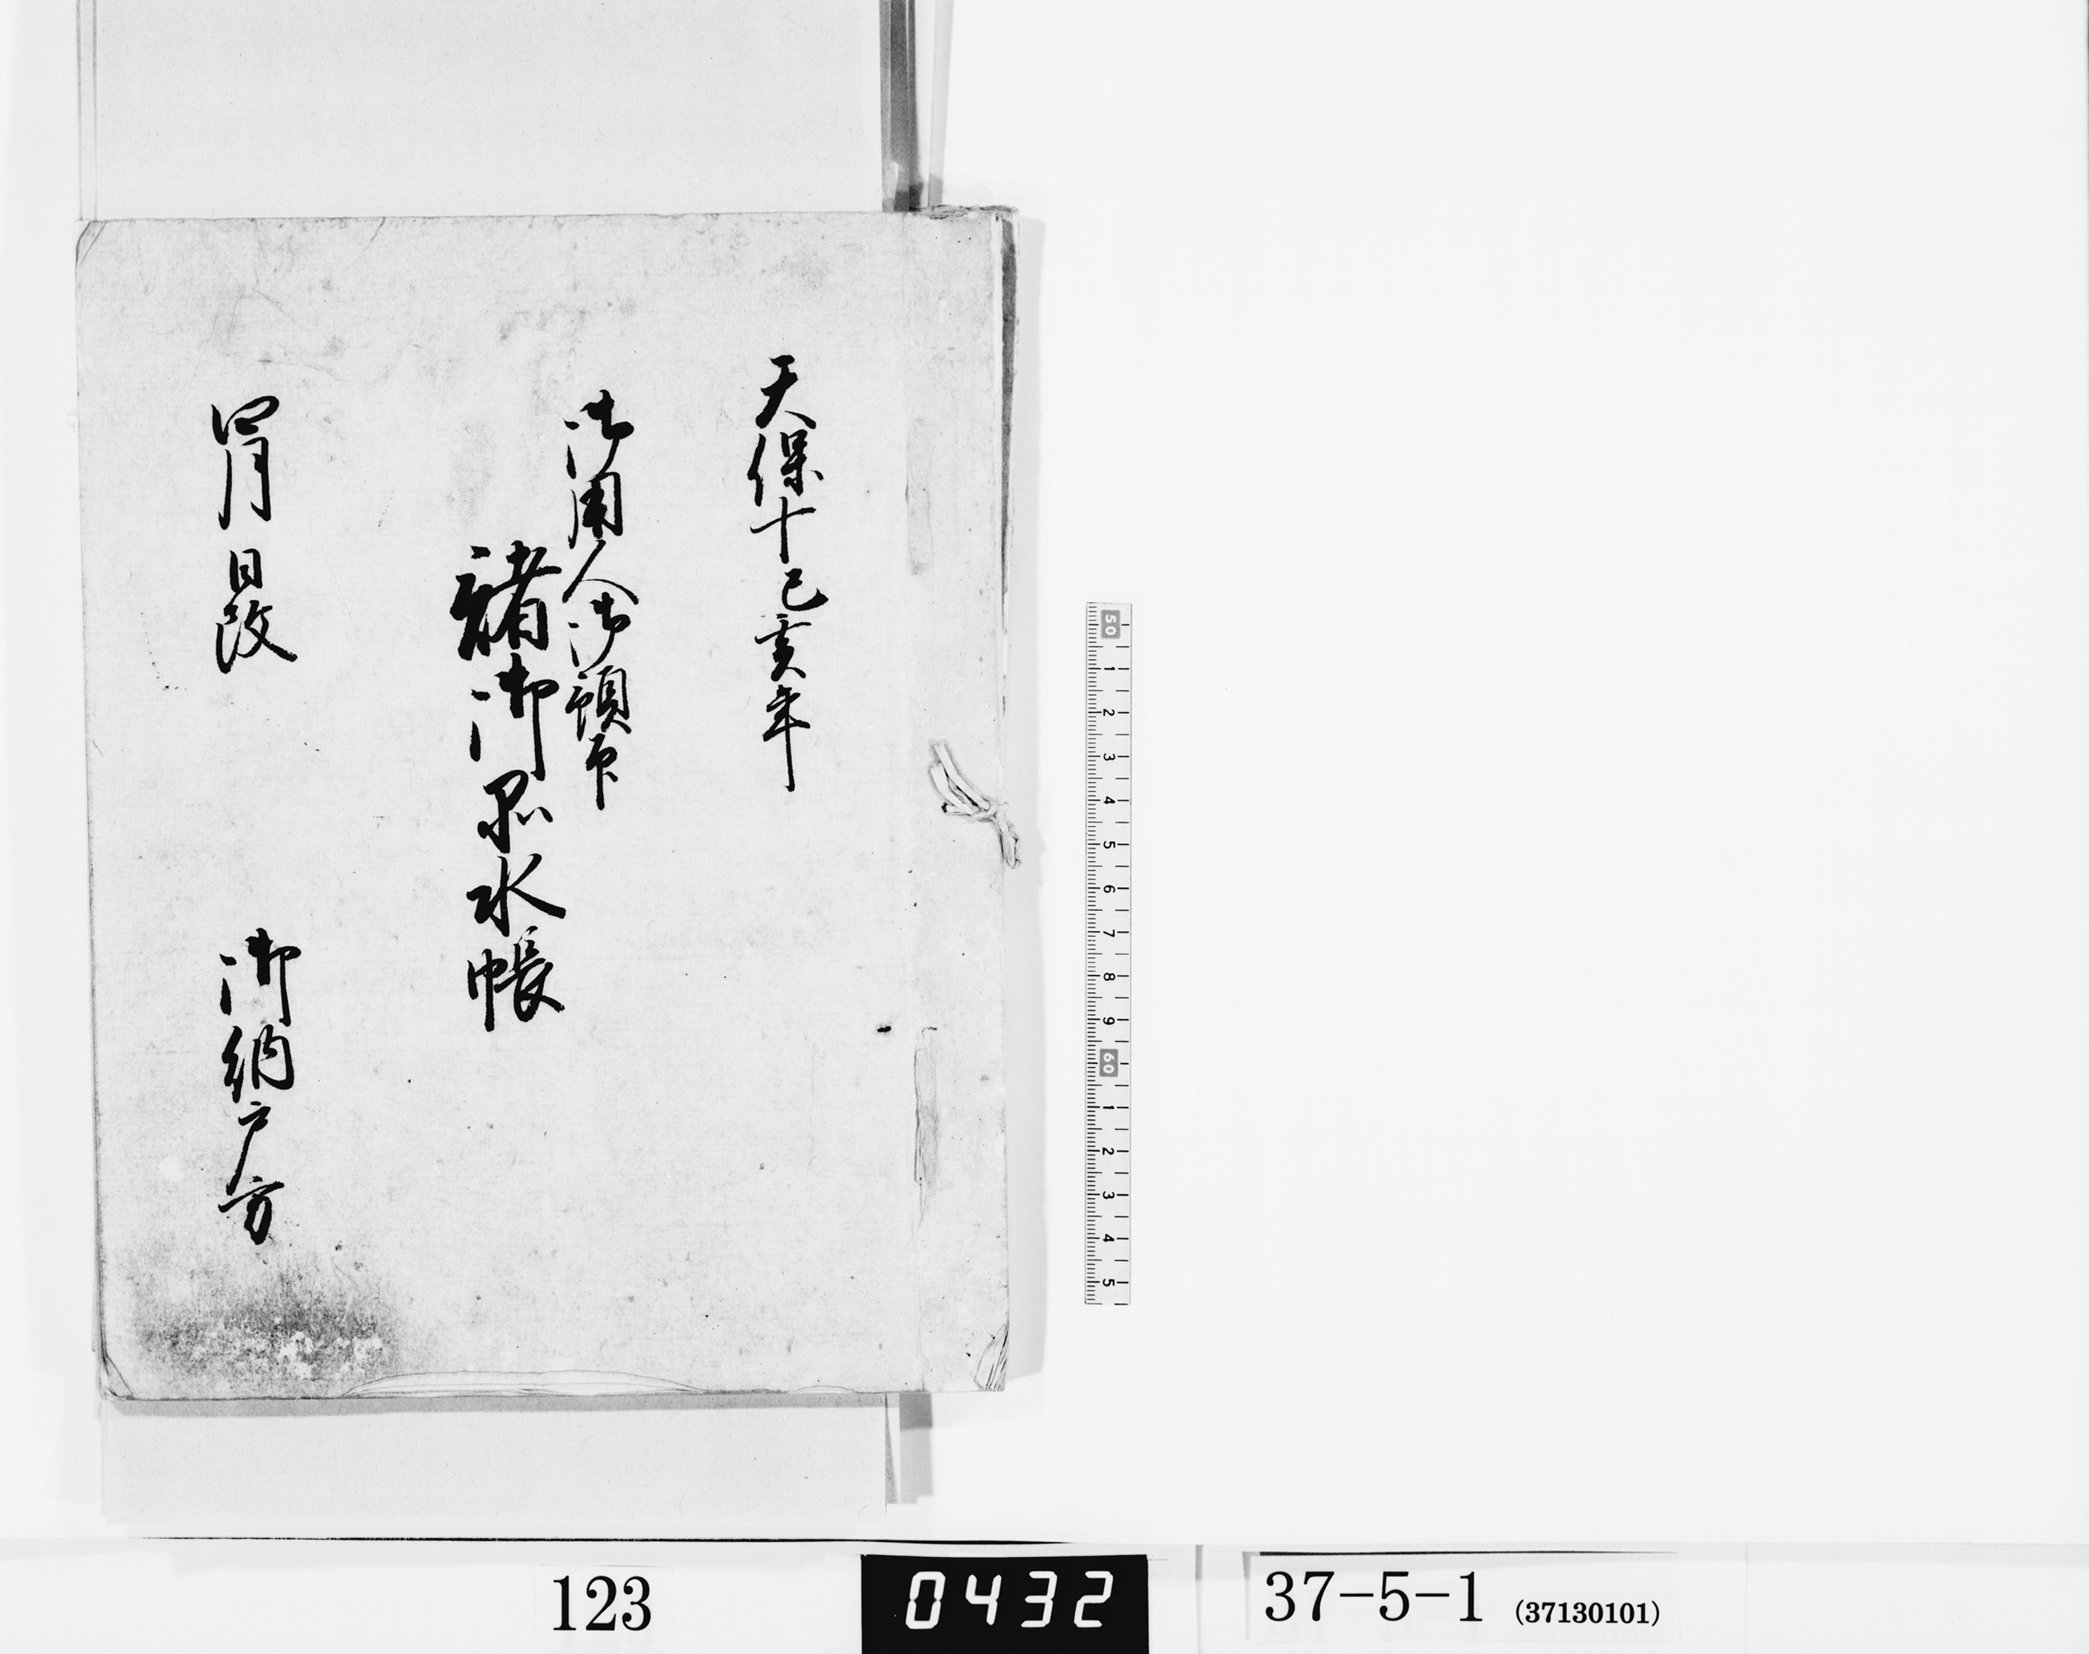 天保十己亥年
御用人御預
諸御品水帳
四月日改
御納戸方
50 1 2 3 4 5 6 7 8 9 60 1 2 3 4 5
123
0432
37-5-1 (37130101)